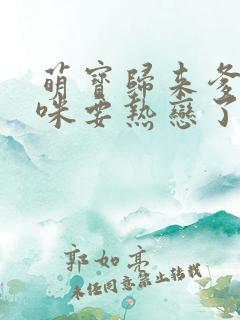 萌寶歸來爹
咪要熱戀了
郭如亮
未经同意禁止转载